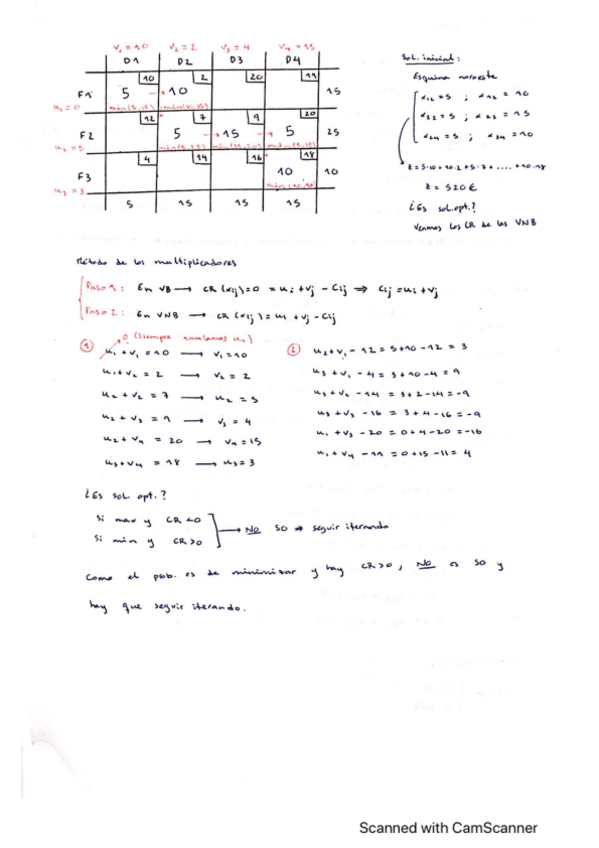 V₁ = 10 V₂ = 2 V₃ = 4 V₄ = 15
D1 D2 D3 D4
10 2 20 11
F1 5 → 10 15
u₁ = 0 min(5,15) min(10,15)
12 7 9 20
F2 5 → 15 → 5 25
u₂ = 5
4 14 16 18
F3 10 10
u₃ = 3
5 15 15 15
Sol. inicial:
Esquina noroeste
x₁₁ = 5 ; x₁₂ = 10
x₂₂ = 5 ; x₂₃ = 15
x₂₄ = 5 ; x₃₄ = 10
Z = 5·10 + 10·2 + 5·7 + ..... + 10·18
Z = 520 €
¿Es sol. opt.?
Veamos los CR de las VNB
Método de los multiplicadores
Paso 1: En VB → CR (xij) = 0 = ui + vj - cij ⇒ cij = ui + vj
Paso 2: En VNB → CR (xij) = ui + vj - cij
0 (Siempre anulamos u₁)
① u₁ + v₁ = 10 → v₁ = 10
u₁ + v₂ = 2 → v₂ = 2
u₂ + v₂ = 7 → u₂ = 5
u₂ + v₃ = 9 → v₃ = 4
u₂ + v₄ = 20 → v₄ = 15
u₃ + v₄ = 18 → u₃ = 3
② u₂ + v₁ - 12 = 5 + 10 - 12 = 3
u₃ + v₁ - 4 = 3 + 10 - 4 = 9
u₃ + v₂ - 14 = 3 + 2 - 14 = -9
u₃ + v₃ - 16 = 3 + 4 - 16 = -9
u₁ + v₃ - 20 = 0 + 4 - 20 = -16
u₁ + v₄ - 11 = 0 + 15 - 11 = 4
¿Es sol. opt.?
Si max y CR < 0
Si min y CR > 0
→ No SO ⇒ seguir iterando
Como el prob. es de minimizar y hay CR > 0, No es SO y
hay que seguir iterando.
Scanned with CamScanner